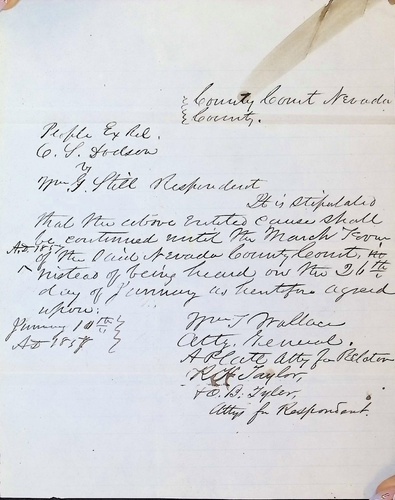 County Court Nevada
County.
People Ex Rel.
C. S. Dodson
vs
Wm J. Still Respondent
It is stipulated
that the above entitled cause shall
be continued until the March Term
A.D. 1857
of the said Nevada County Court,
instead of being heard on the 26th
day of January as heretofore agreed
upon:
January 10th
AD 1857
Wm T Wallace
Atty. General.
A Platt Atty for Relator
R. H. Taylor,
& O. B. Tyler,
Attys for Respondent.